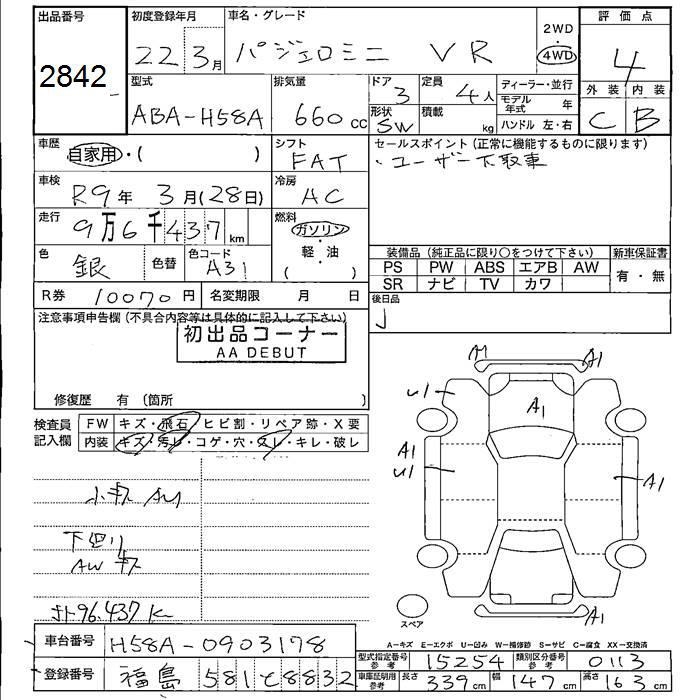 出品番号 初度登録年月 車名・グレード 評価点
2842 22 3月 パジェロミニ VR 2WD 4WD 4
型式 排気量 ドア 定員 ディーラー・並行 外装 内装
ABA-H58A 660cc 3 4人 モデル年式 年 C B
形状 SW 積載 kg ハンドル 左・右
車歴 自家用・( ) シフト FAT
セールスポイント(正常に機能するものに限ります)
・ユーザー下取車
車検 R9年 3月(28日) 冷房 AC
走行 9万6千437km 燃料 ガソリン・軽・油 ( )
色 銀 色替 色コード A31
装備品(純正品に限り○をつけて下さい) 新車保証書
PS PW ABS エアB AW 有・無
SR ナビ TV カワ
R券 10070円 名変期限 月 日
後日品
注意事項申告欄(不具合内容等は具体的に記入して下さい)
初出品コーナー
AA DEBUT
修復歴 有(箇所 )
検査員記入欄 FW キズ・飛石・ヒビ割・リペア跡・X要
内装 キズ・汚レ・コゲ・穴・スレ・キレ・破レ
小キズ AU
下廻り
AW キズ
オト96.437K
A1 A1
U1 A1
A1 U1 A1
A1
スペア
A-キズ E-エクボ U-凹み W-補修跡 S-サビ C-腐食 XX-交換済
車台番号 H58A-0903178
型式指定番号 参考 15254 類別区分番号 参考 0113
登録番号 福島 581 と 8832
車庫証明用 参考 長さ 339cm 幅 147cm 高さ 163cm